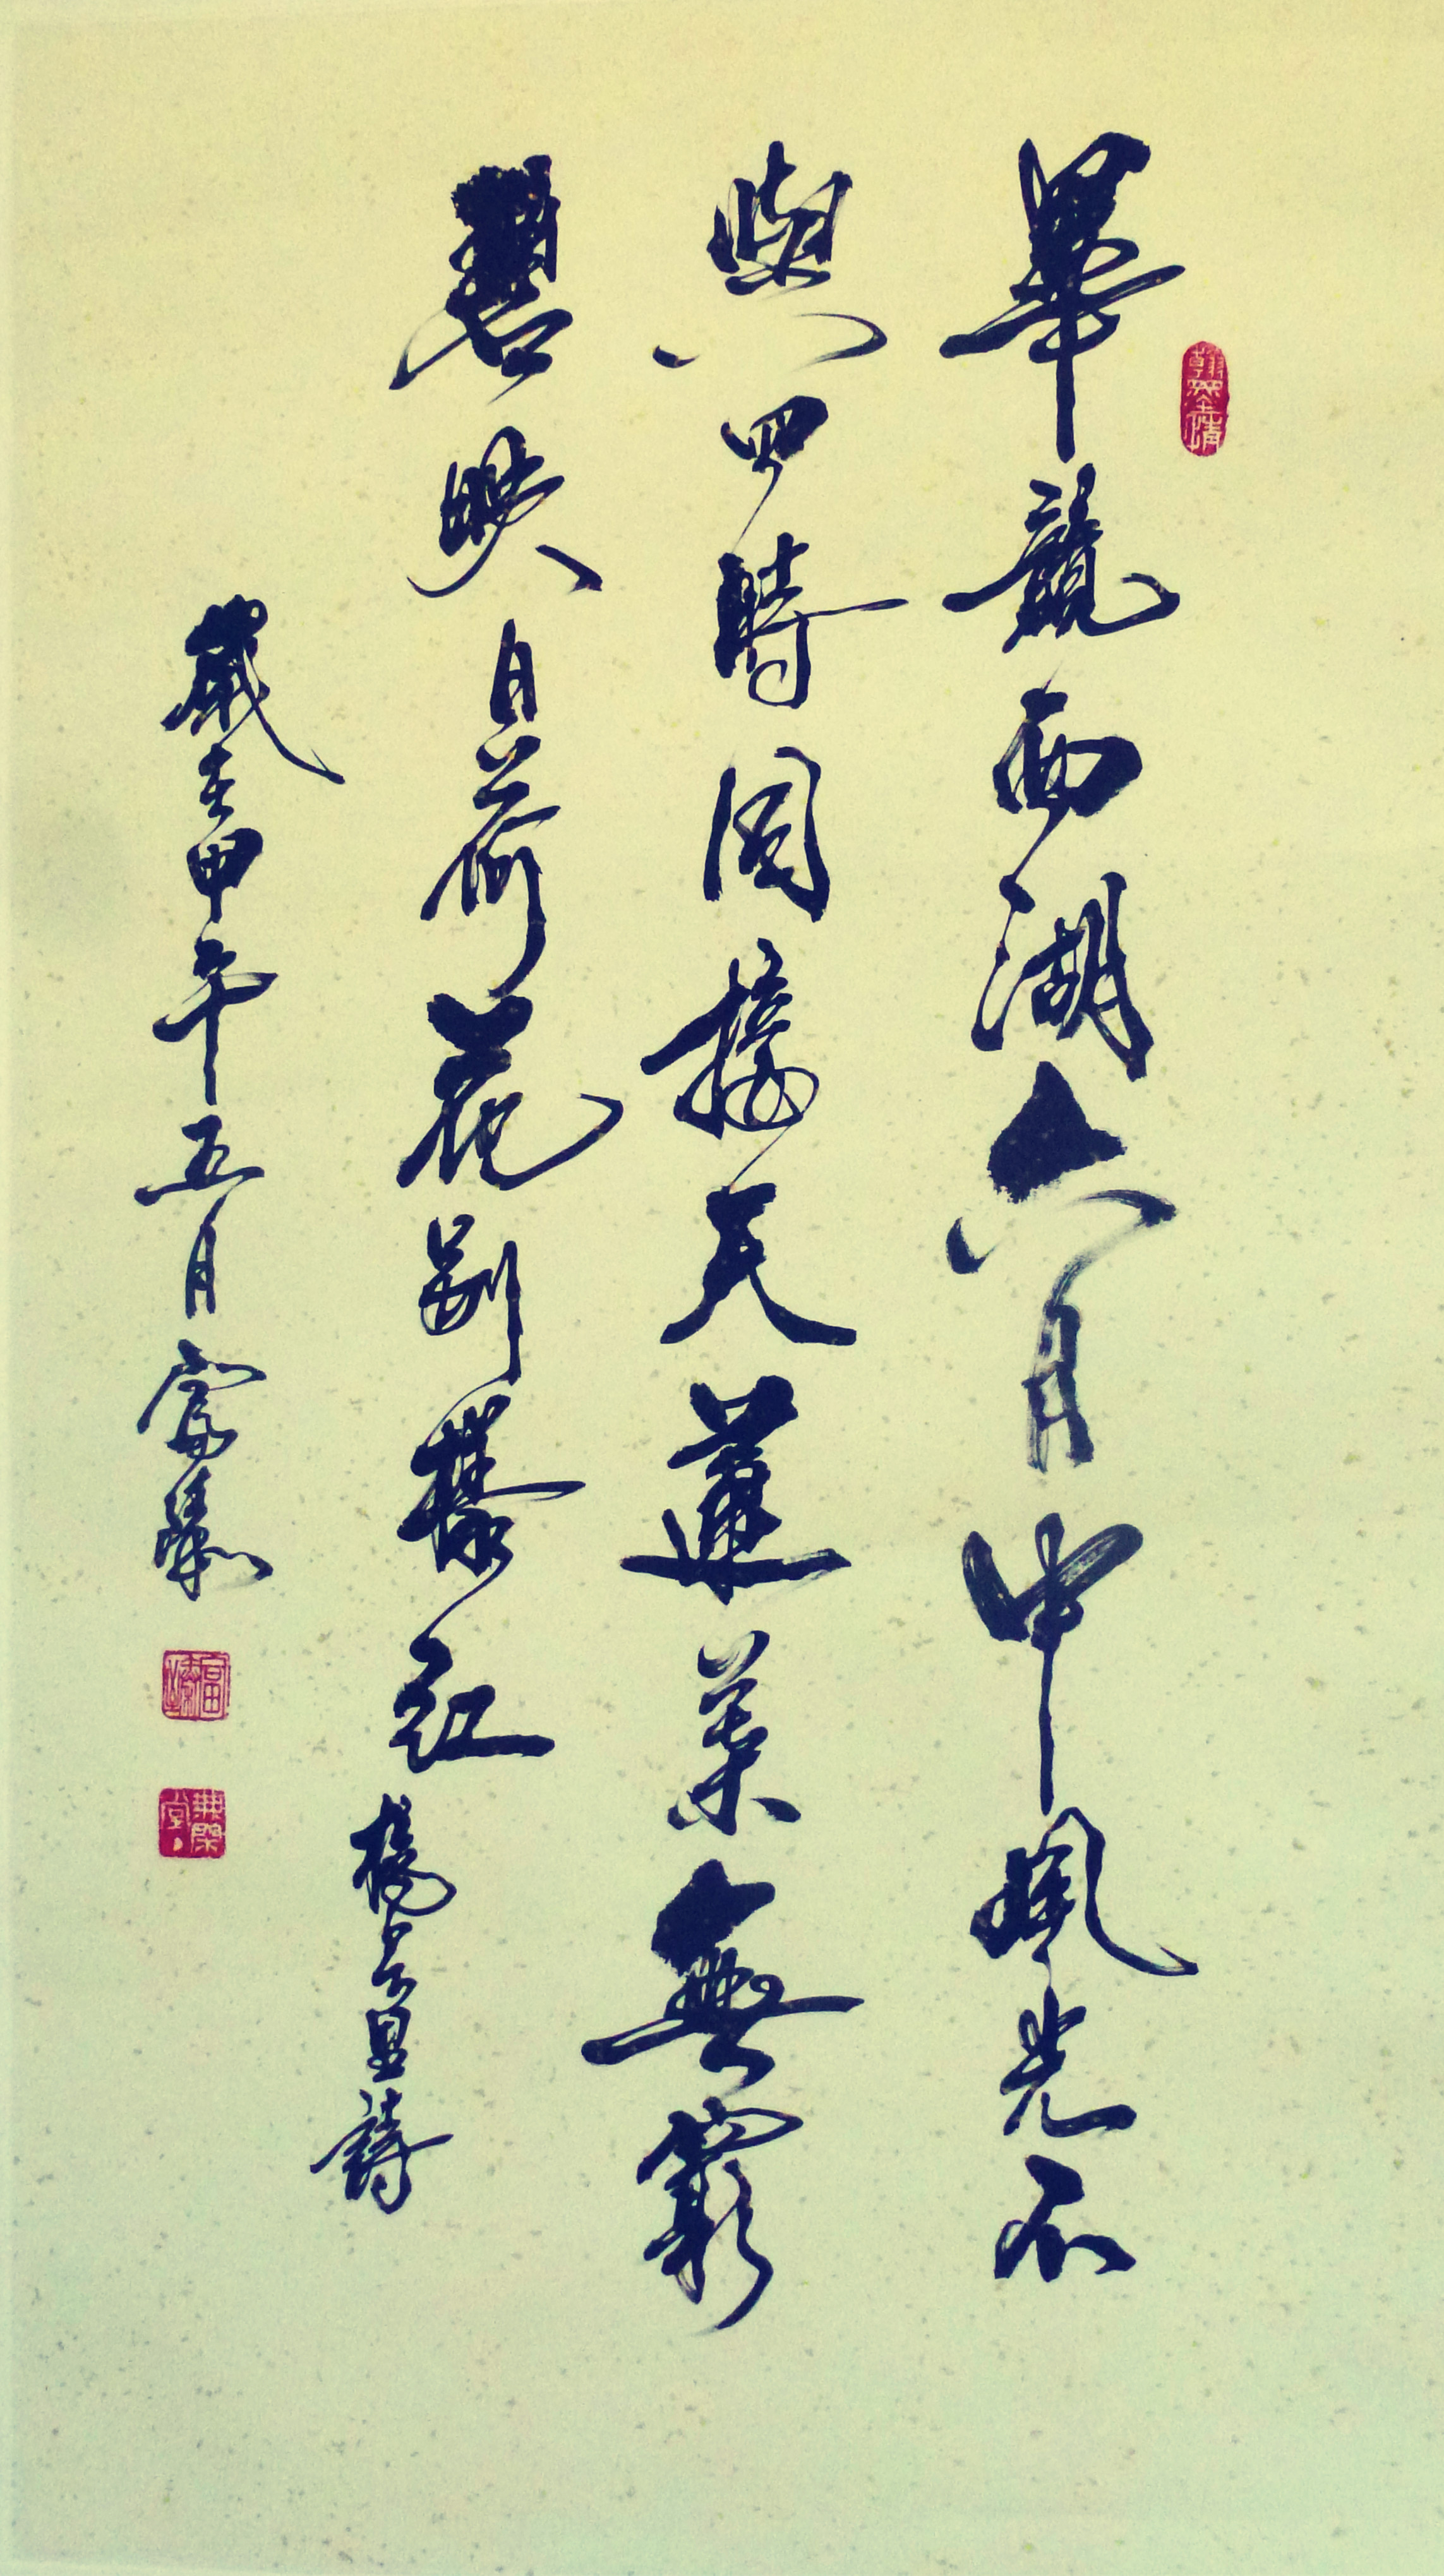 畢竟西湖六月中風光不
與四時同接天蓮葉無窮
碧映日荷花別樣紅 楊萬里詩
歲在甲午年五月富臻